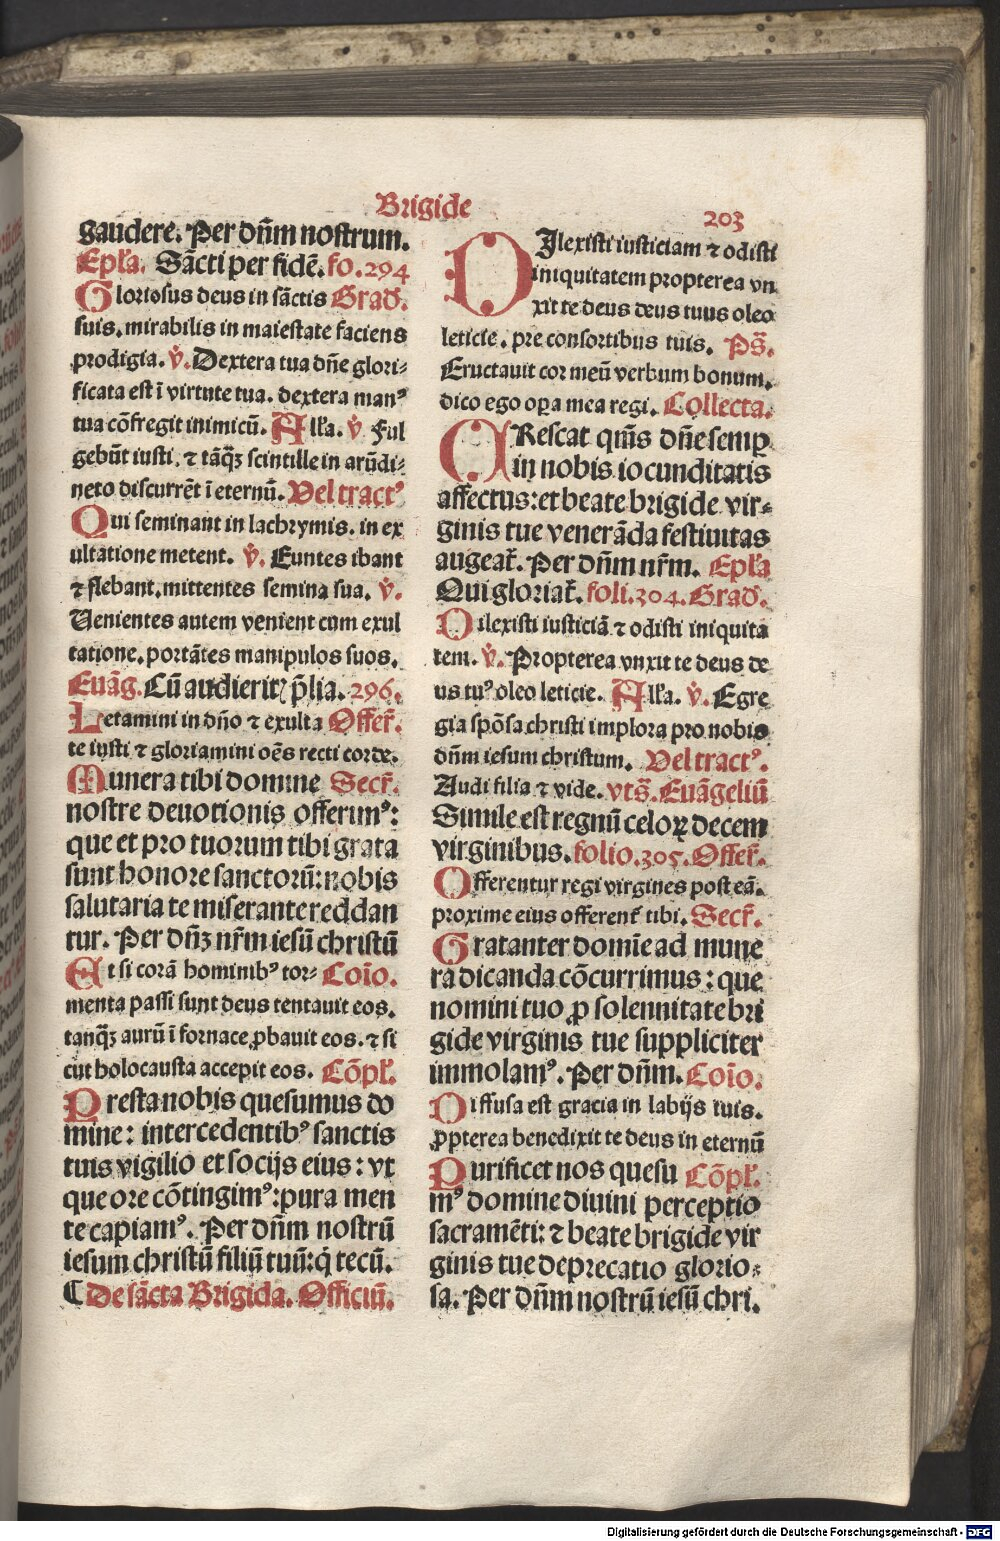 Brigide
203
gaudere. Per dñm nostrum.
Epła. Sãcti per fidẽ. fo. 294
Gloriosus deus in sãctis Grad̃.
suis. mirabilis in maiestate faciens
prodigia. v̇. Dextera tua dñe glori⸗
ficata est ĩ virtute tua. dextera manꝰ
tua cõfregit inimicũ. Alła. v̇ Ful
gebũt iusti. ⁊ tãq̃ꝫ scintille in arũdi⸗
neto discurrẽt ĩ eternũ. Vel tractꝰ
Qui seminant in lachrymis. in ex
ultatione metent. v̇. Euntes ibant
⁊ flebant. mittentes semina sua. v̇.
Venientes autem venient cum exul
tatione. portãtes manipulos suos.
Euãg. Cũ audieritꝭ p̃lia. 296.
Letamini in dño ⁊ exulta Offer̃.
te iusti ⁊ gloriamini oẽs recti corde.
Munera tibi domine Secr̃.
nostre deuotionis offerimꝰ:
que et pro tuorum tibi grata
sunt honore sanctorũ: nobis
salutaria te miserante reddan
tur. Per dñꝫ nr̃m iesũ christũ
Et si corã hominibꝰ tor⸗ Coĩo.
menta passi sunt deus tentauit eos.
tanq̃ꝫ aurũ ĩ fornace ꝓbauit eos. ⁊ si
cut holocausta accepit eos. Cõpł.
Presta nobis quesumus do
mine: intercedentibꝰ sanctis
tuis vigilio et socijs eius: vt
que ore cõtingimꝰ: pura men
te capiamꝰ. Per dñm nostrũ
iesum christũ filiũ tuũ: q̇ tecũ.
¶ De sãcta Brigida. Officiũ.
DIlexisti iusticiam ⁊ odisti
iniquitatem propterea vn
xit te deus deus tuus oleo
leticie. pre consortibus tuis. Ps̃.
Eructauit cor meũ verbum bonum.
dico ego oꝑa mea regi. Collecta.
CRescat qm̃s dñe semꝑ
in nobis iocunditatis
affectus: et beate brigide vir⸗
ginis tue venerãda festiuitas
augeat̃. Per dñm nr̃m. Epła
Qui gloriat̃. foli. 304. Grad̃.
Dilexisti iusticiã ⁊ odisti iniquita
tem. v̇. Propterea vnxit te deus de
us tuꝰ oleo leticie. Alła. v̇. Egre
gia spõsa christi implora pro nobis
dñm iesum christum. Vel tractꝰ.
Audi filia ⁊ vide. vts̃. Euãgeliũ
Simile est regnũ celoꝝ decem
virginibus. folio. 305. Offer̃.
Offerentur regi virgines post eã.
proxime eius offerent̃ tibi. Secr̃.
Gratanter domĩe ad mune
ra dicanda cõcurrimus: que
nomini tuo ꝓ solennitate bri
gide virginis tue suppliciter
immolamꝰ. Per dñm. Coĩo.
Diffusa est gracia in labijs tuis.
ꝓpterea benedixit te deus in eternũ
Purificet nos quesu Cõpł.
mꝰ domine diuini perceptio
sacramẽti: ⁊ beate brigide vir
ginis tue deprecatio glorio⸗
sa. Per dñm nostrũ iesũ chri.
Digitalisierung gefördert durch die Deutsche Forschungsgemeinschaft - DFG